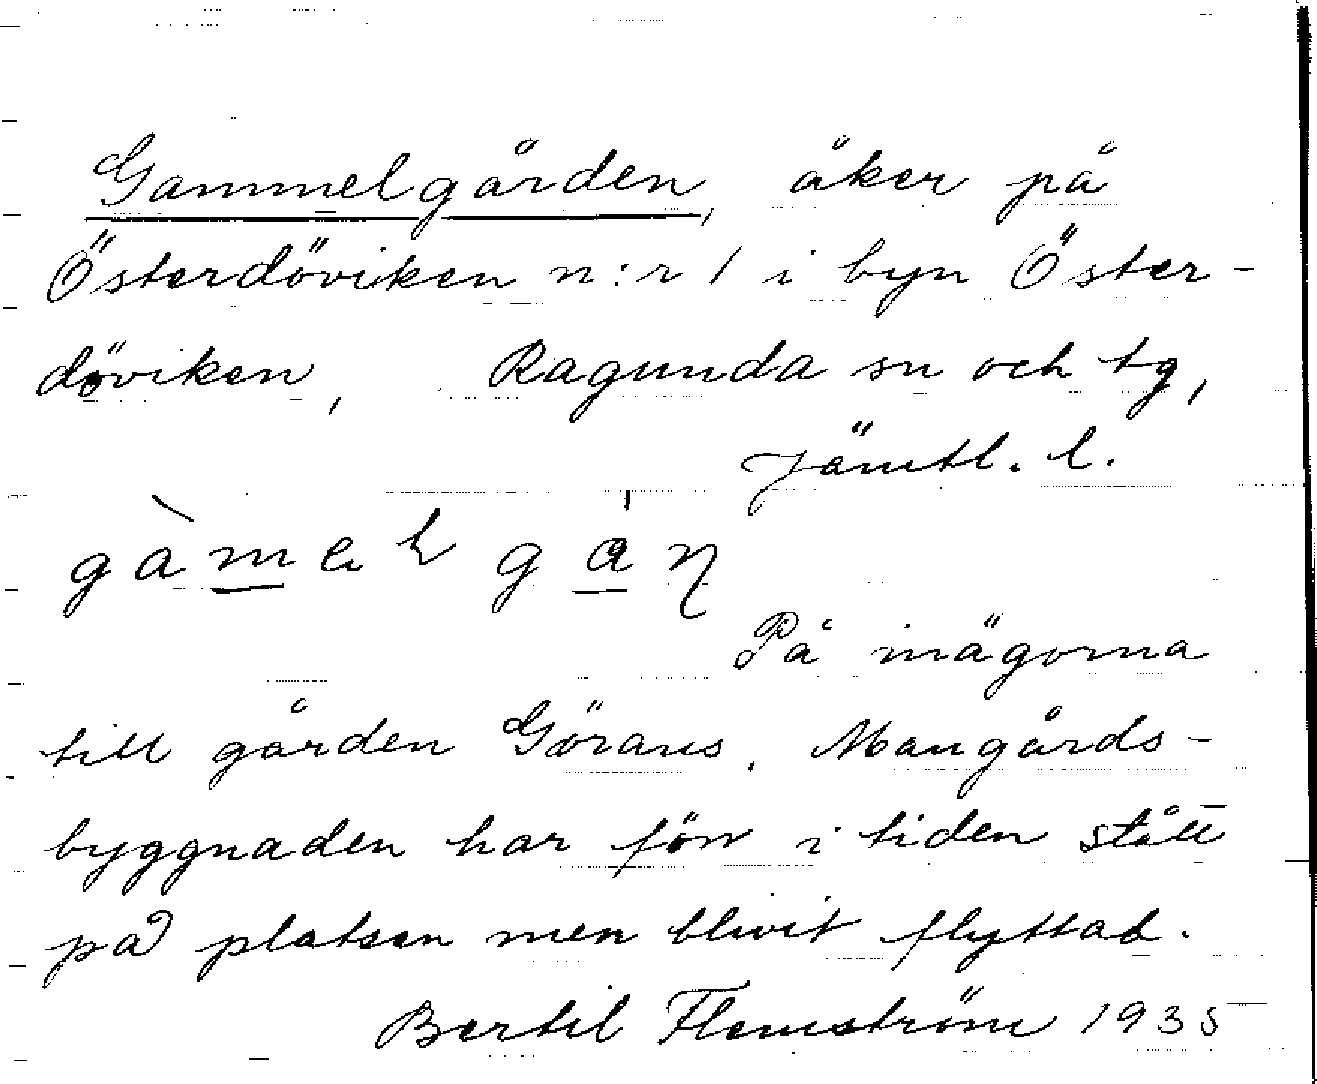 Gammelgården, åker på
Österdöviken n:r 1 i byn Öster-
döviken, Ragunda sn och tg,
Jämtl. l.
På inägorna
till gården Görans. Mangårds-
byggnaden har förr i tiden stått
på platsen men blivit flyttad.
Bertil Flemström 1935